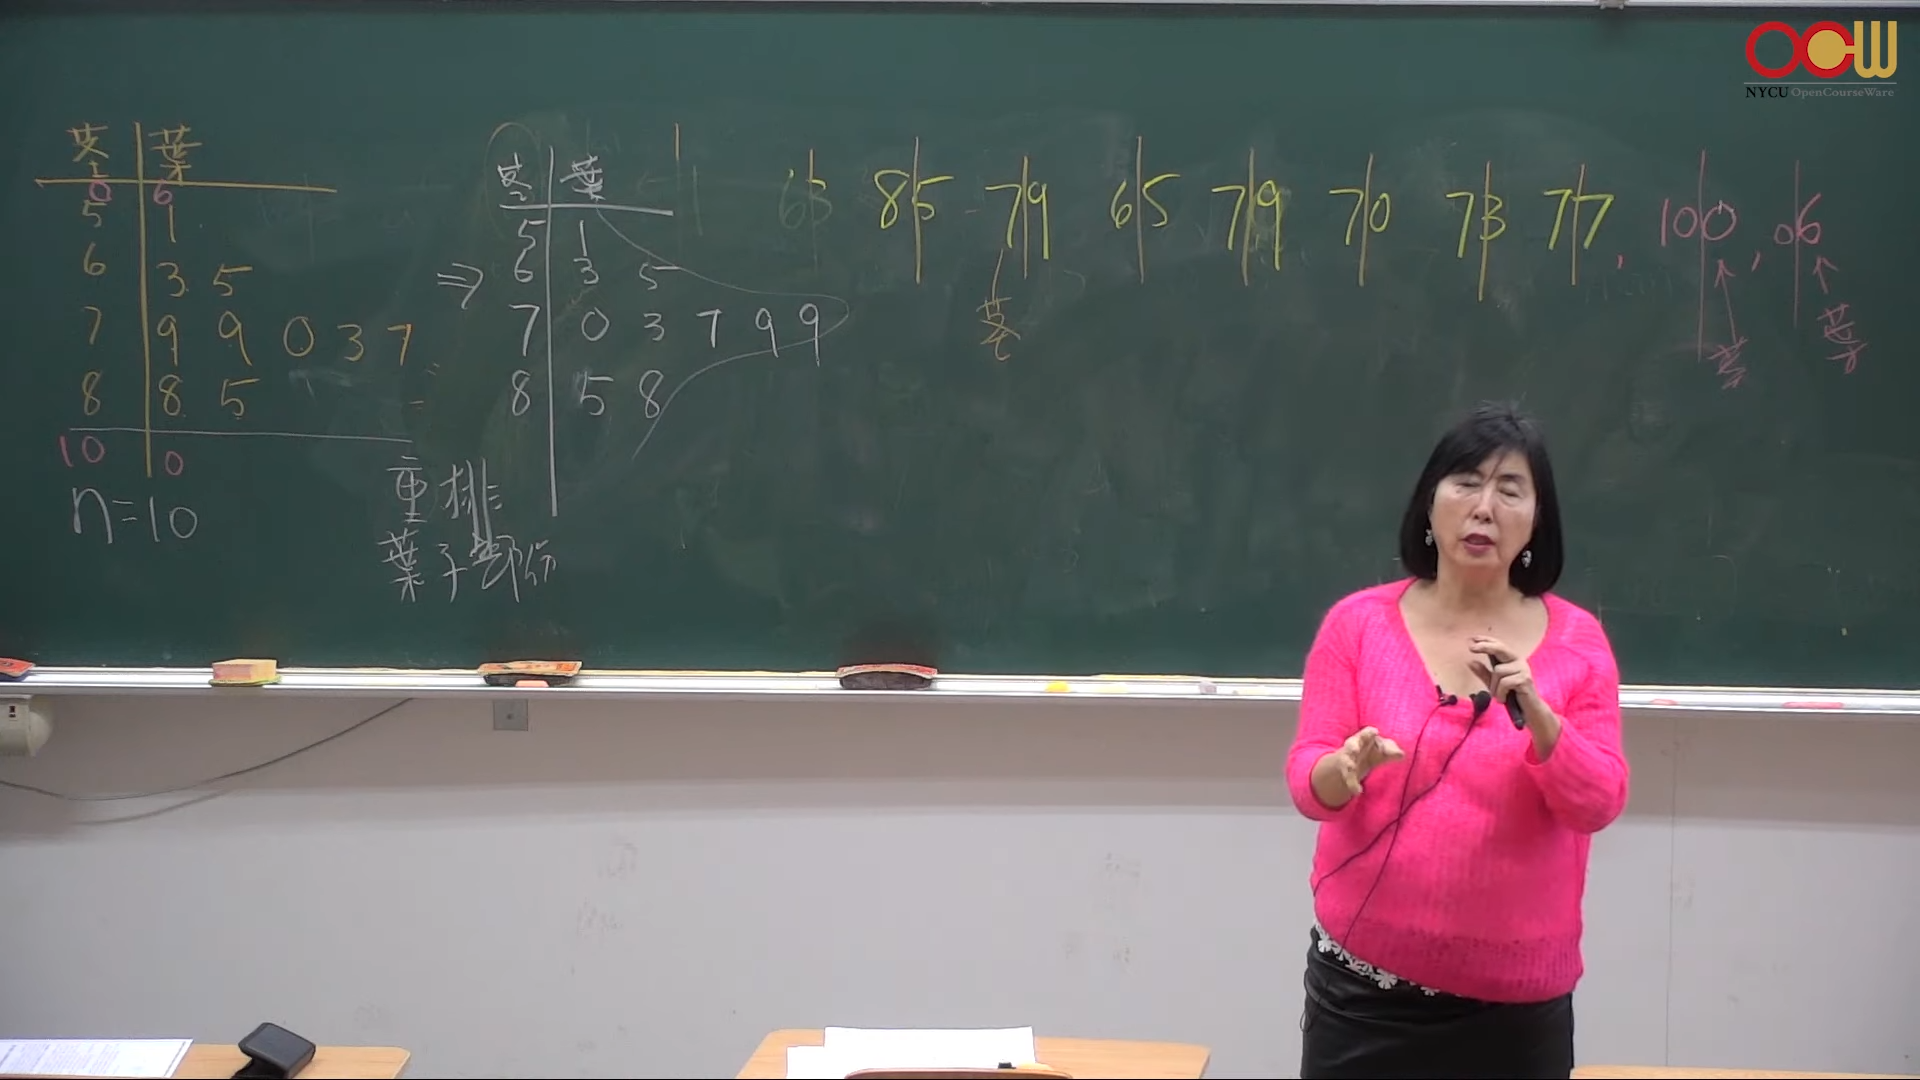 OCW
NYCU OpenCourseWare
莖 葉
0 6
5 1
6 3 5
7 9 9 0 3 7
8 8 5
10 0
n=10
⇒
莖 葉
5 1
6 3 5
7 0 3 7 9 9
8 5 8
重排
葉子部份
63 85 79 65 79 70 73 77, 100, 06
莖
葉
葉